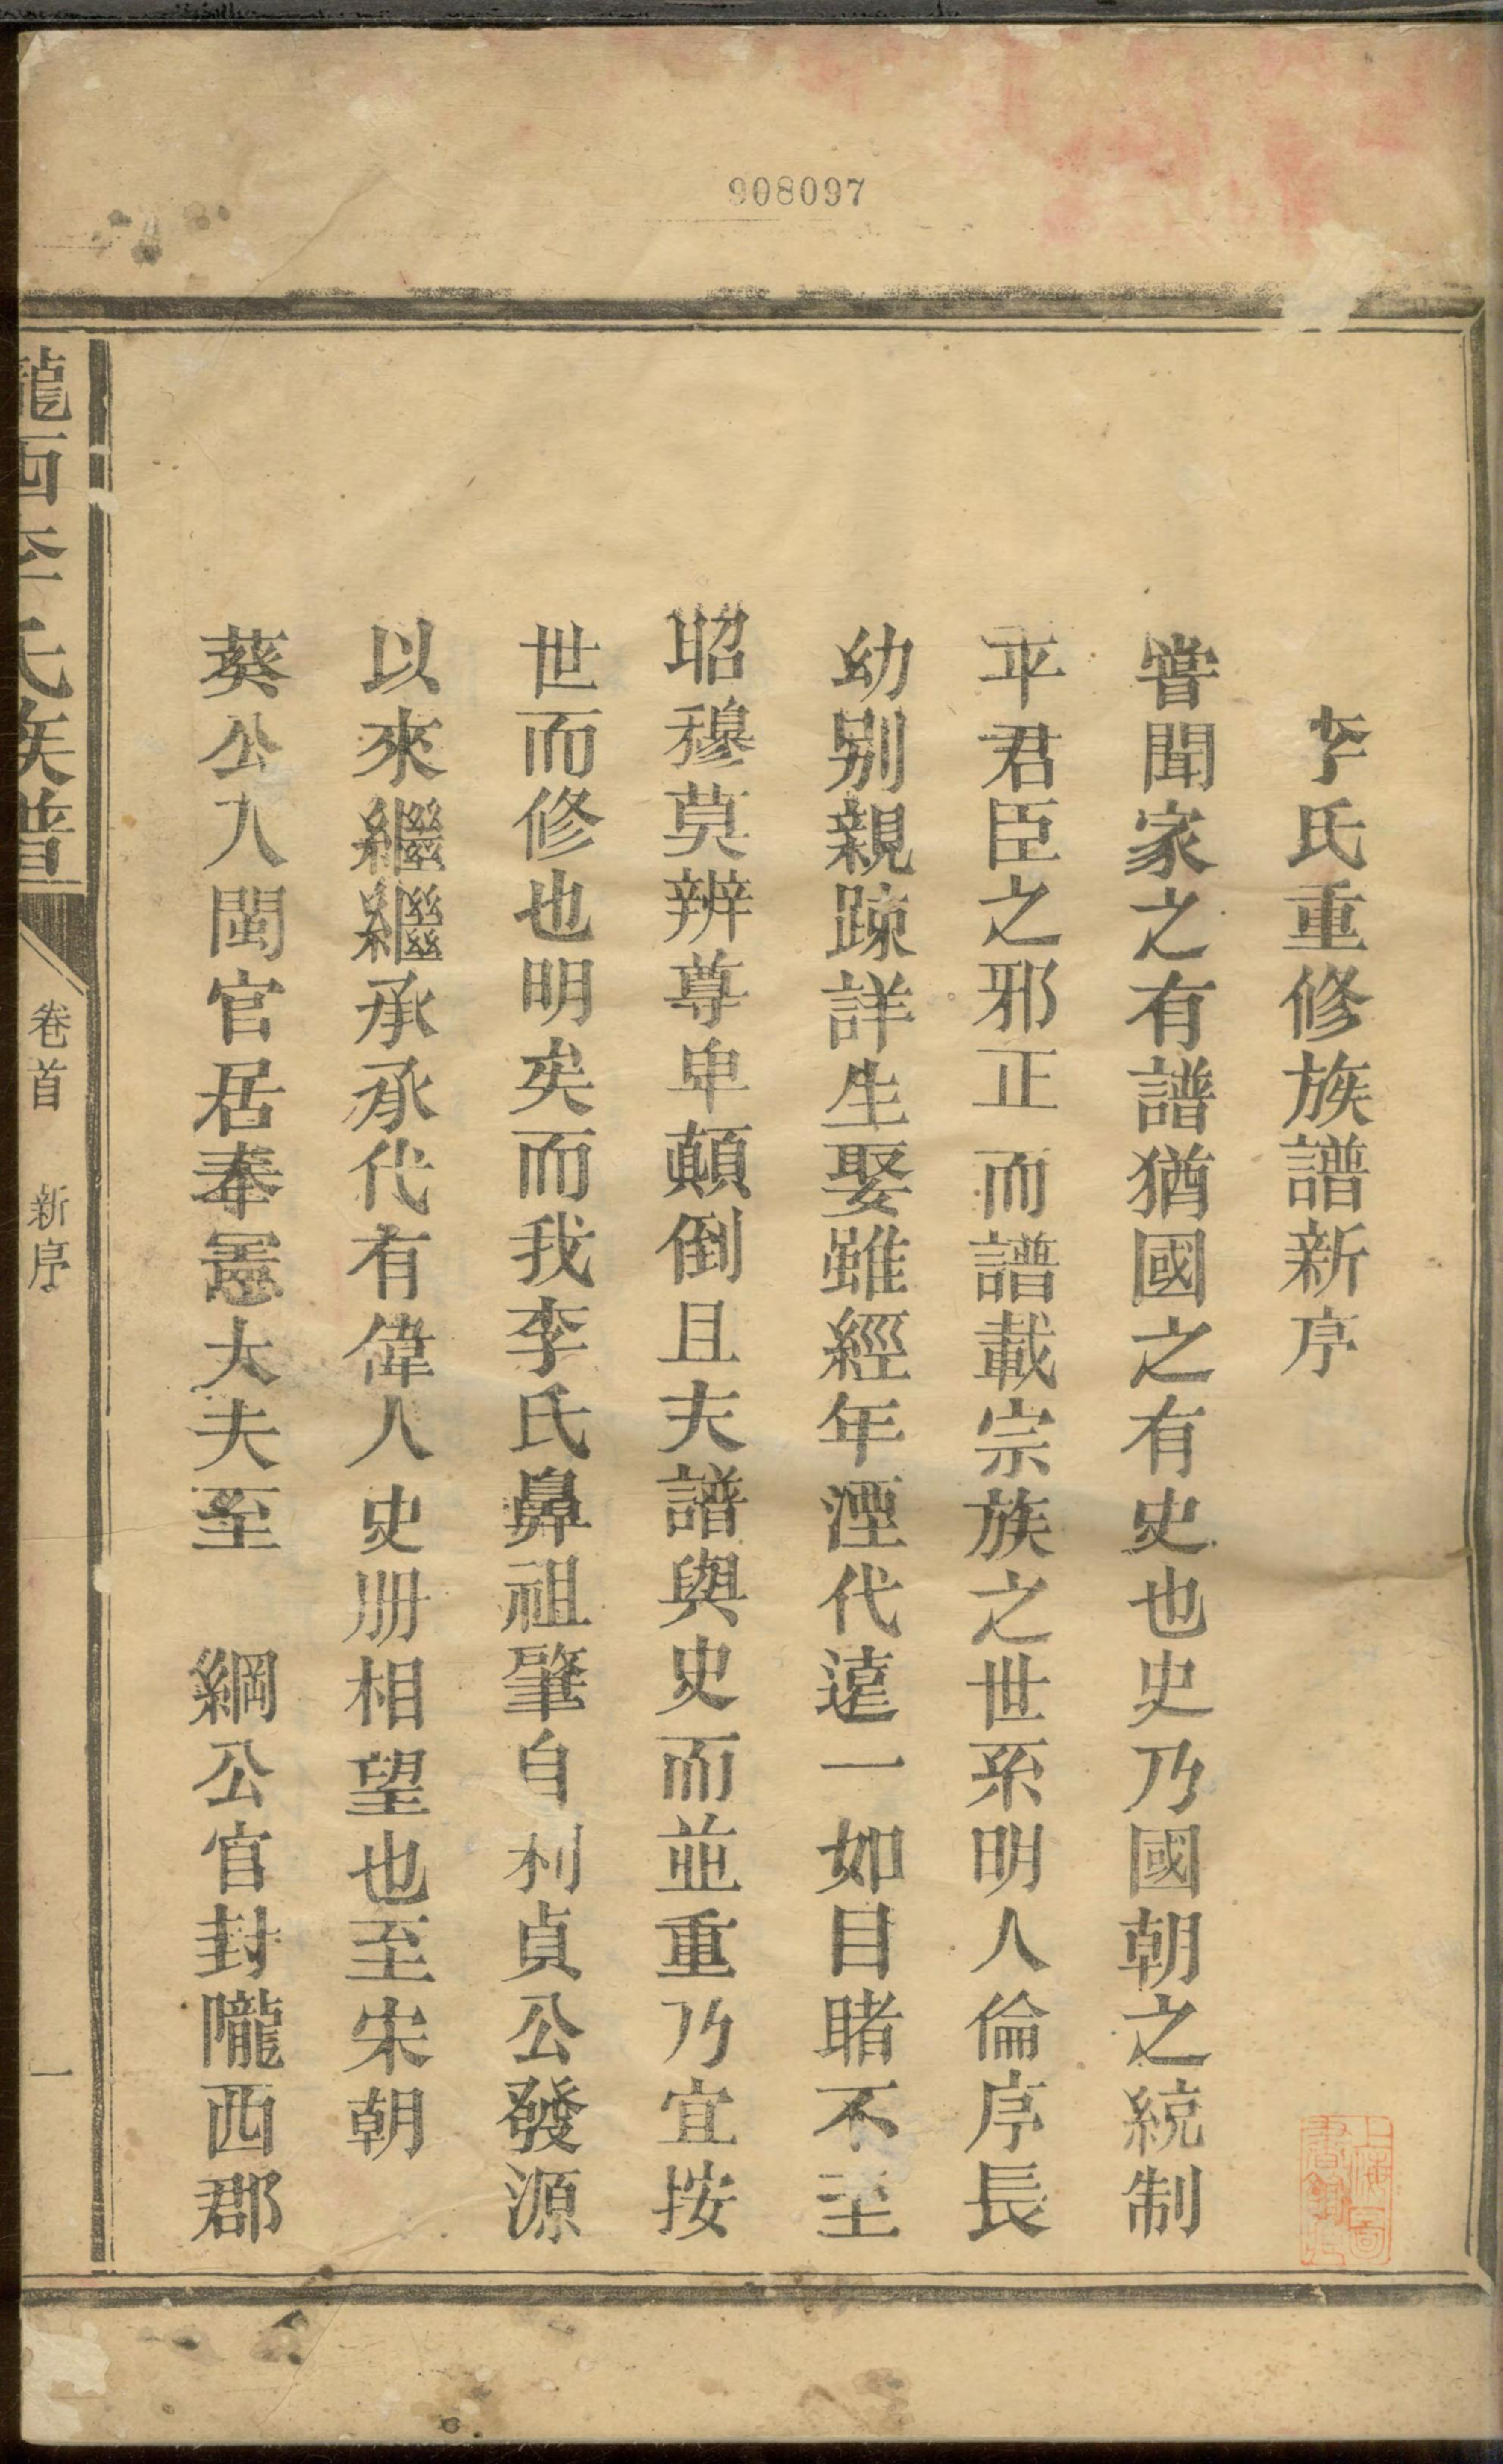 908097
李氏重修族譜新序
嘗聞家之有譜猶國之有史也史乃國朝之統制
平君臣之邪正而譜載宗族之世系明人倫序長
幼別親踈詳生娶雖經年湮代遠一如目睹不至
昭穆莫辨尊卑顛倒且夫譜與史而並重乃宜按
世而修也明矣而我李氏鼻祖肇自利貞公發源
以來繼繼承承代有偉人史册相望也至宋朝
葵公入閩官居奉憲大夫至 綱公官封隴西郡
隴西李氏族譜 卷首 新序 一
上海圖書館藏